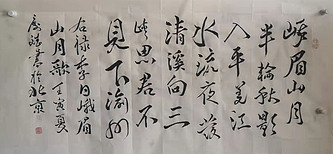 峨眉山月
半轮秋影
入平羌江
水流夜发
清溪向三
峡思君不
见下渝州
右录李白峨眉
山月歌壬寅夏
於北京